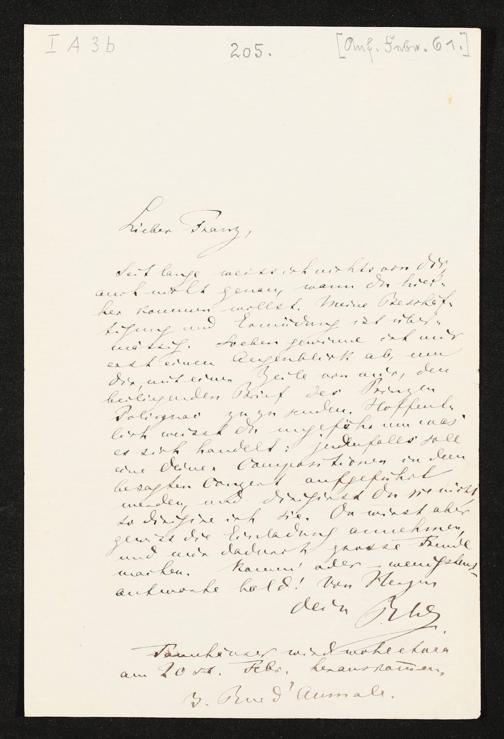 I A 3b
205.
[Anf. Febr. 61.]
Lieber Franz,
Seit lange weiss ich nichts von Dir,
auch nicht genau, wann Du hier-
her kommen willst. Meine Beschäf-
tigung und Ermüdung ist über-
mässig. Soeben gewinne ich mir
erst einen Augenblick ab, um
Dir, mit einer Zeile von mir, den
beiliegenden Brief des Prinzen
Polignac zuzusenden. Hoffent-
lich weisst Du ungefähr um was
es sich handelt: jedenfalls soll
eine Deiner Compositionen in dem
besagten Concert aufgeführt
werden, und dirigirst Du sie nicht
so dirigire ich sie. Du wirst aber
gewiss die Einladung annehmen,
und mir dadurch grosse Freude
machen. Komm' oder wenigstens
antworte bald! Von Herzen
Dein
Tannhäuser wird wohl etwa
am 20st. Febr. herauskommen.
3. Rue d'Aumale.